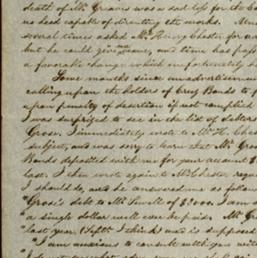 death of Mr Grose was a sad loss for the C
no head capable of directing the works.
several times asked Mr Henry Chester for a
but he could give me none, and time has pass
a favorable change which unfortunately h
Some months since an advertisement
calling upon the holders of Bonds to p
upon penalty of desertion if not complied
I was surprized to see in the list of
Grose. I immediately wrote to Mr H. Ches
subject, and was sorry to learn that Mr Gros
Bonds deposited with me for your account
last. I then wrote again to Mr Chester reques
I should do, and he answered me as follow
"Grose's debt to Mr Sewell of $2000. I am
"a single dollar will ever be paid. Mr G
"last year (Septr I think) was is supposed
"I am anxious to consult with you